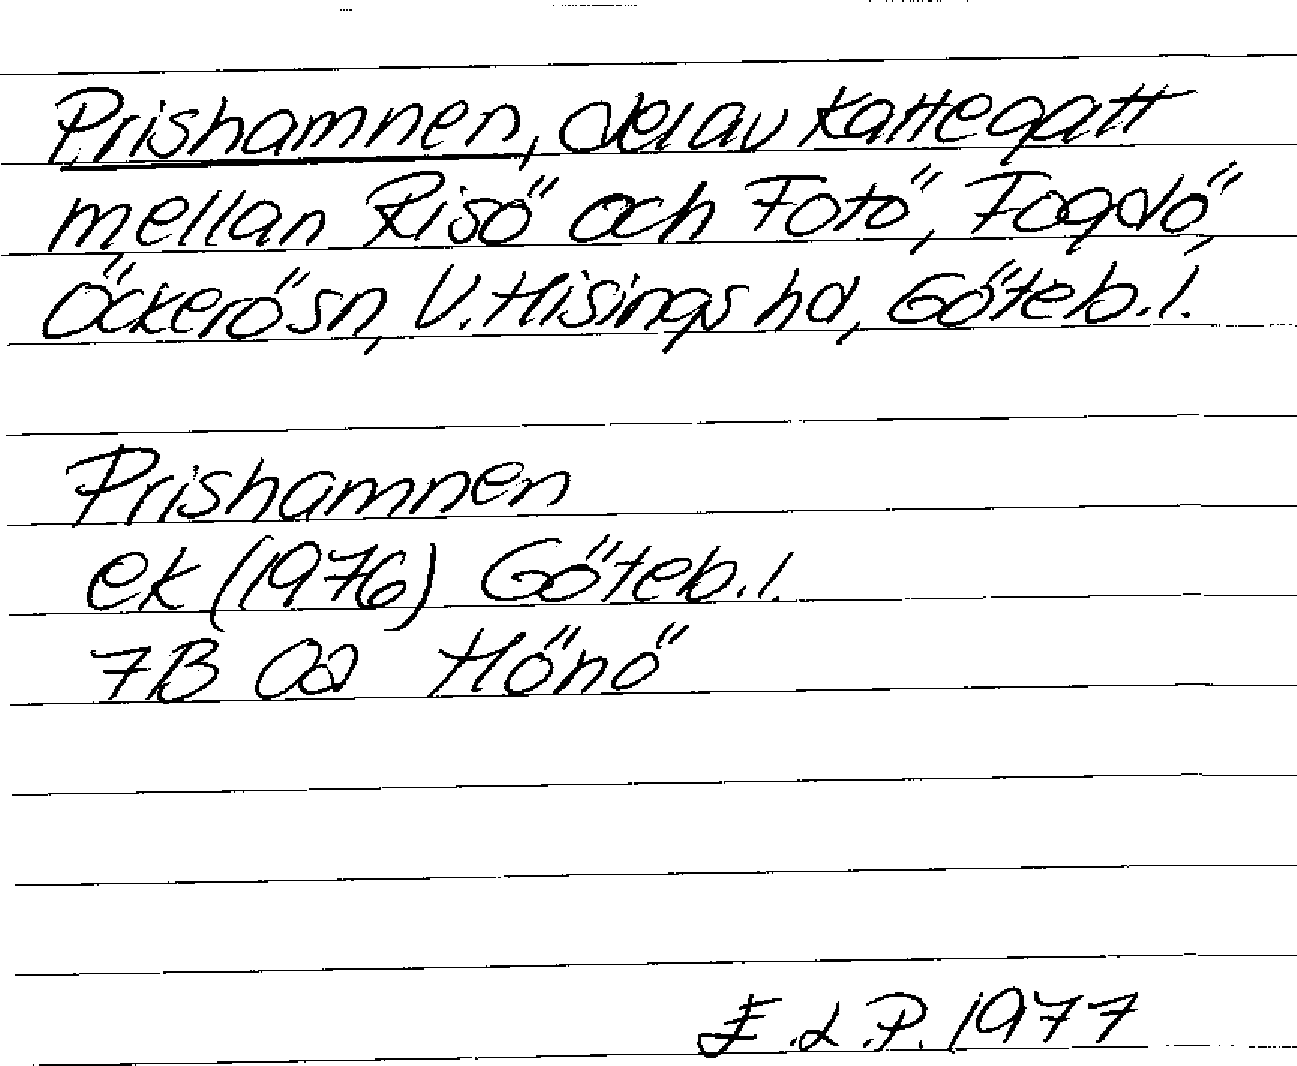 Prishamnen, del av Kattegatt
mellan Risö och Fotö, Fogdö,
Öckerö sn, V. Hisings hd, Göteb. l.
Prishamnen
ek (1976) Göteb. l.
7B 0a Hönö
E.L.P. 1977